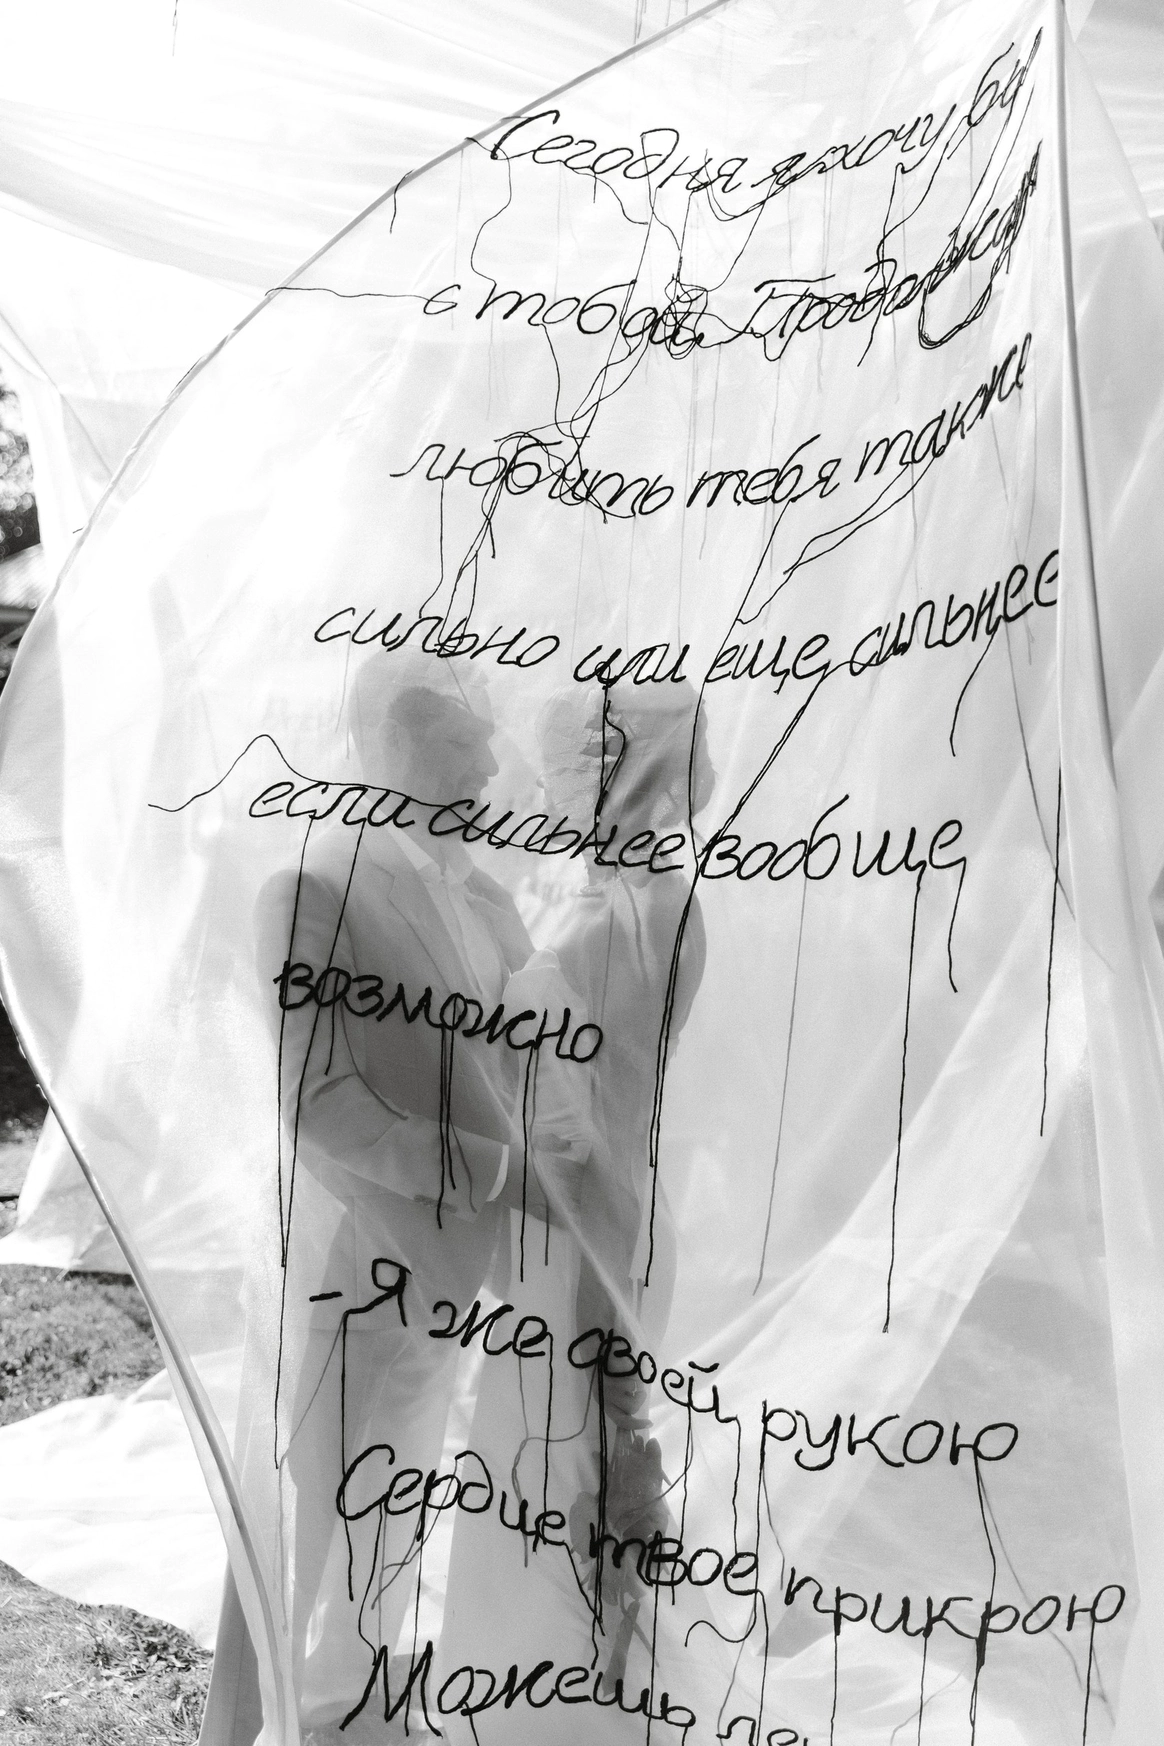 Сегодня я хочу бы
с тобой. Продолжат
любить тебя также
сильно или еще сильнее
если сильнее вообще
возможно
-Я же своей рукою
Сердце твое прикрою
Можешь ле